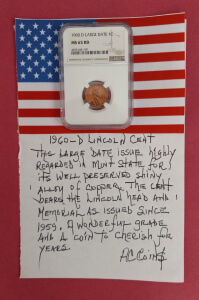 1960 D LARGE DATE 1C
MS 65 RD
NGC
1960-D LINCOLN CENT
THIS LARGE DATE ISSUE HIGHLY
REGARDED IN MINT STATE FOR
ITS WELL PRESERVED SHINY
ALLOY OF COPPER. THE CENT
BEARS THE LINCOLN HEAD AND
MEMORIAL AS ISSUED SINCE
1959. A WONDERFUL GRADE
AND A COIN TO CHERISH FOR
YEARS.